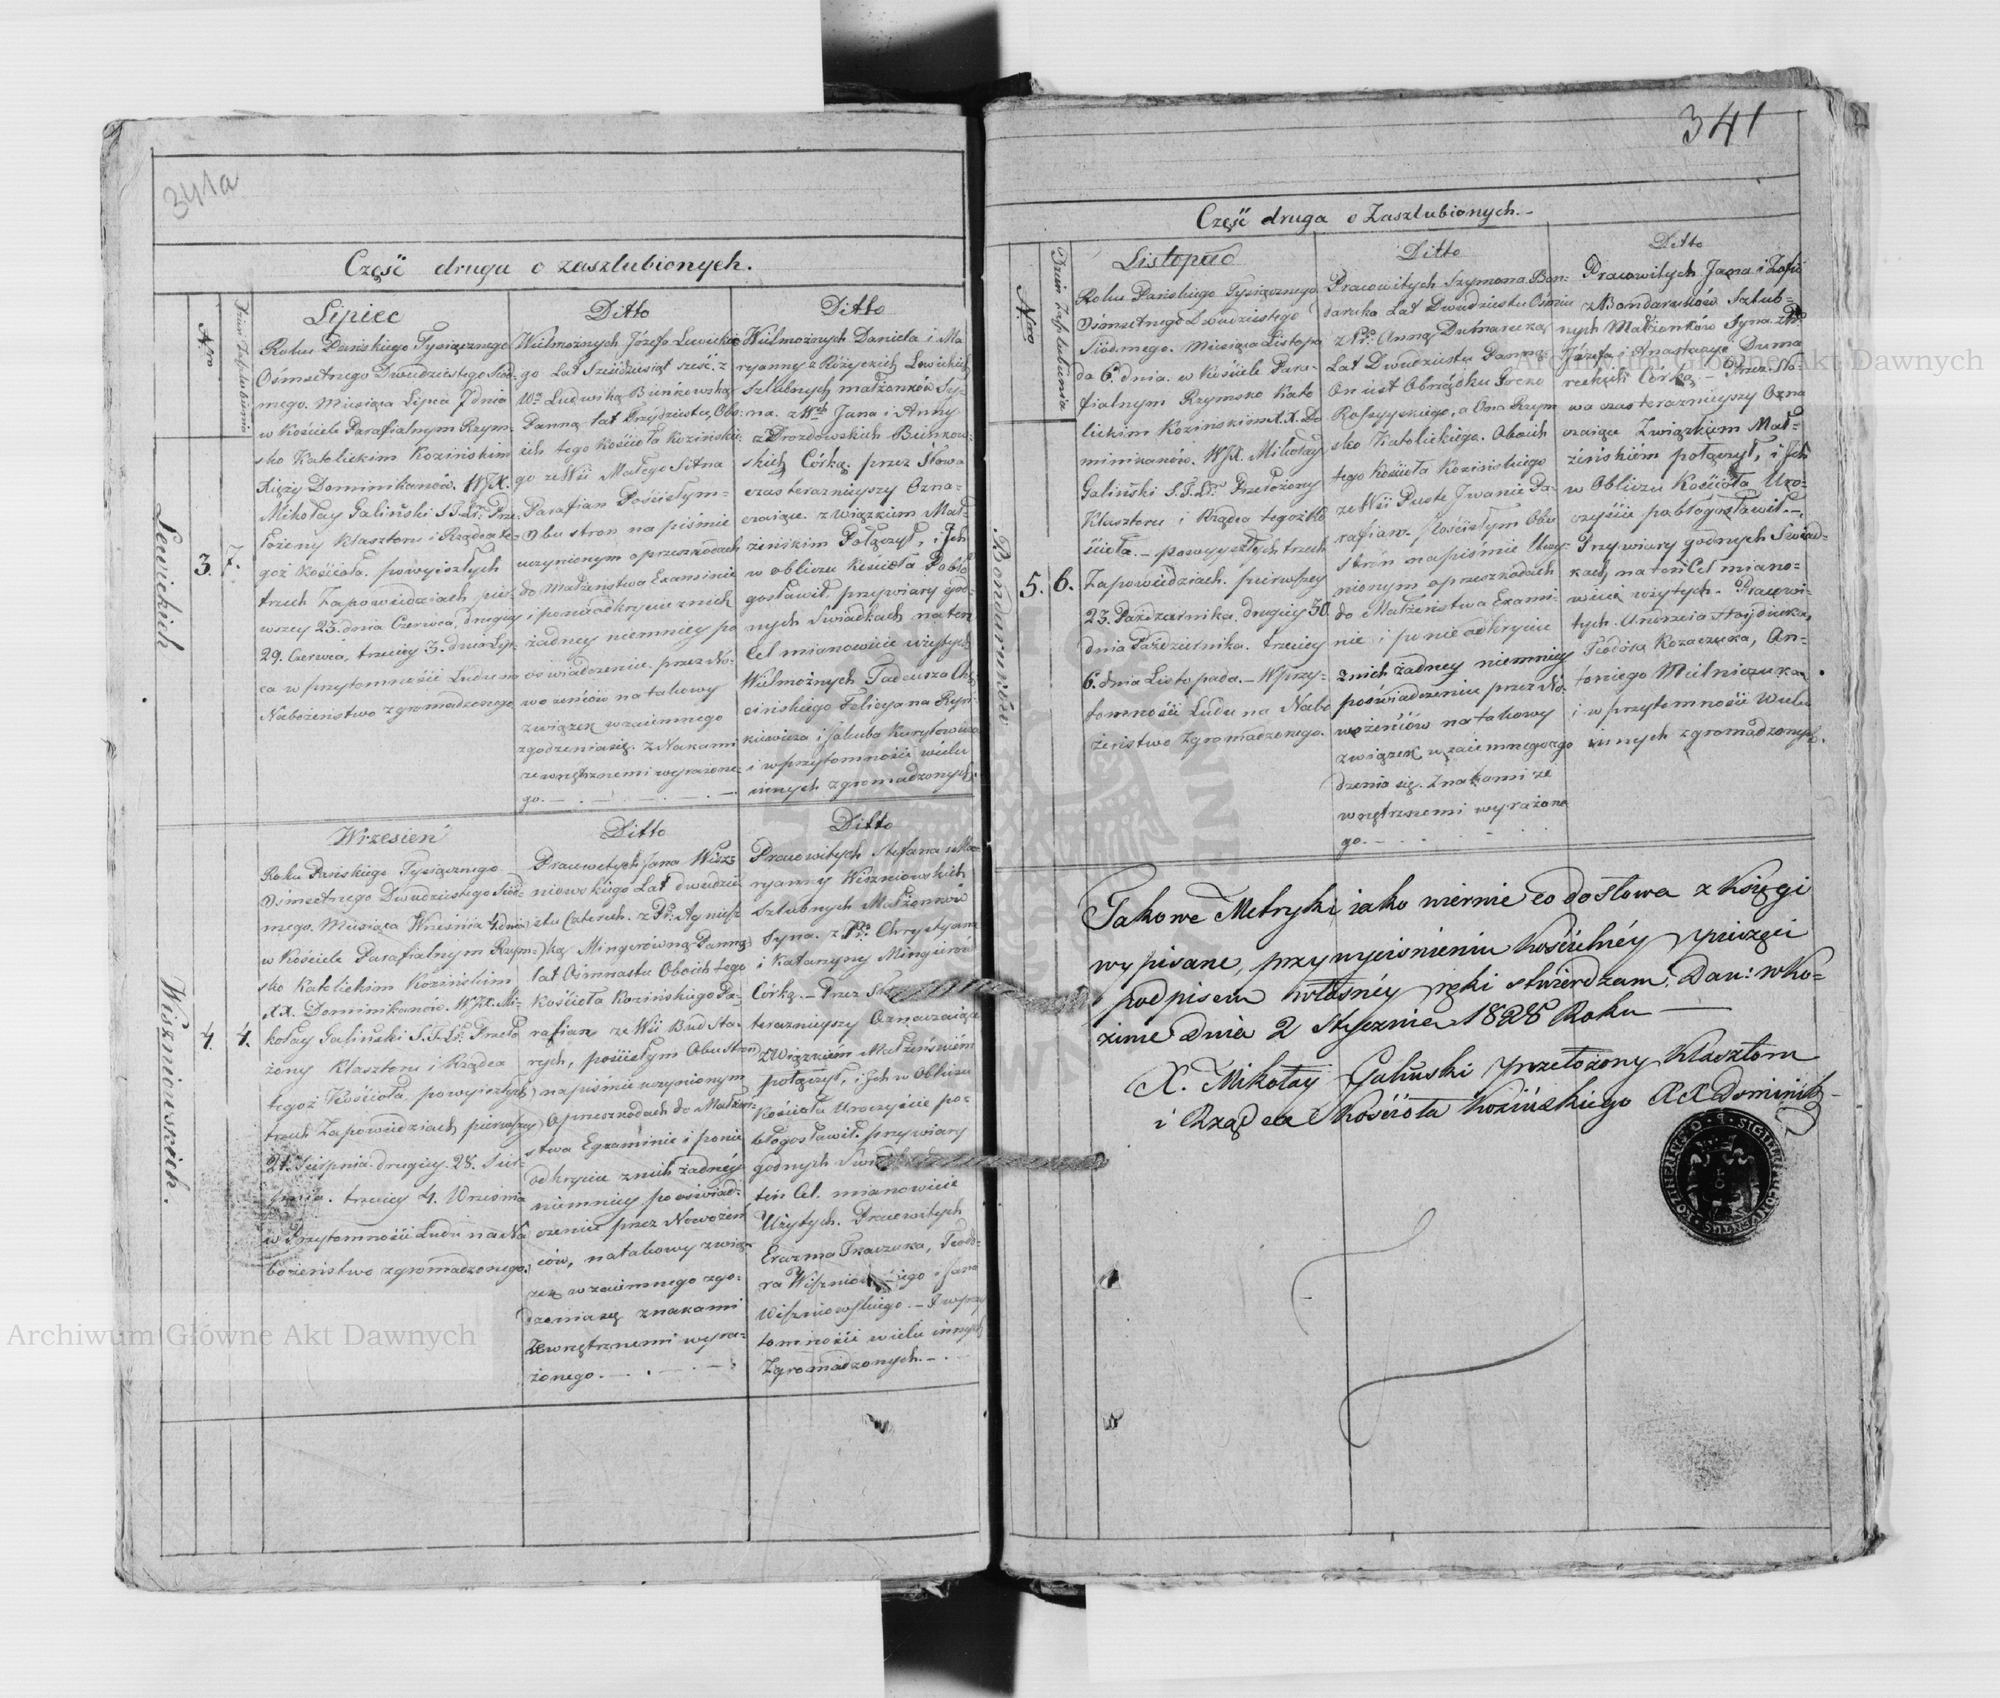 341a
Część druga o zaszlubionych.
Nro
Dzień Zaszlubienia
Lewickich
3. 7.
Lipiec
Roku Pańskiego Tysiącznego
Ośmsetnego Dwudziestego Siód-
mego. Miesiąca Lipca 7 dnia
w Kościele Parafialnym Rzym-
sko Katolickim Kozińskim
Xięży Dominikanów. WJX.
Mikołay Galiński S.T.Lr. Prze-
łożony Klasztoru i Rządca te-
goż Kościoła. powyiszłych
trzech Zapowiedziach pier-
wszey 23. dnia Czerwca, drugiey
29. Czerwca, trzeciey 3. dnia Lip-
ca w przytomności Ludu na
Nabożeństwo zgromadzonego
Ditto
Wielmożnych Józefa Lewickie
go Lat Sześdziesiąt sześć. z
Wą Ludwiką Bieńkowską
Panną lat Trzydziestu, Obo-
ich tego Kościoła Kozińskie-
go ze Wsi Małego Sitna
Parafian Pościsłym
Obu stron na piśmie
uczynionym oprzeszkodach
do Małżeństwa Examinie
i ponieodkryciu znich
żadney niemniey po
oswiadczenie przez No-
wożeńców natakowy
związek wzaiemnego
zgodzeniasię. Znakami
zewnętrznemi wyrażone-
go.
Ditto
Wielmożnych Daniela i Ma
ryanny z Różyckich Lewickich
Szlubnych małżonków Sy-
na. z Jana i Anny
z Drozdowskich Bieńkow-
skich Córką. przez Słowa
czas teraznieyszy Ozna-
czaiące. związkiem Mał
żeńskim Połączył, i Ich
w obliczu Kościoła Pobło
gosławił. przy wiary god-
nych Swiadkach na ten
Cel mianowicie użytych
Wielmożnych Tadeusza
Felicyana
i Jakuba Kuryłowicza
i wprzytomności wielu
innych zgromadzonych.
Wiszniowskich.
4. 4.
Wrzesień
Roku Pańskiego Tysiącznego
Ośmsetnego Dwudziestego Siód-
mego. Miesiąca Września 4 dnia
w Kościele Parafialnym Rzym-
sko Katolickim Kozińskim
XX. Dominikanów. WJX. Mi-
kołay Galiński S.T.Lr. Przeło
żony Klasztoru i Rządca
tegoż Kościoła. powyiszłych
trzech Zapowiedziach pierwszey
21. Sierpnia. drugiey 28. Sier-
pnia. trzeciey 4. Września
w Przytomności Ludu na Na
bożeństwo zgromadzonego.
Ditto
Pracowitych Jana Wisz-
niowskiego Lat dwudzie
stu Czterech. z Pr. Agniesz
ką Mingerówną Panną
lat Ośmnastu Oboich tego
Kościoła Kozińskiego Pa-
rafian ze Wsi Bud Sta-
rych, pościsłym Obu Stron
napiśmie uczynionym
Oprzeszkodach do Małżeń-
stwa Egzaminie i ponie
odkryciu znich żadnéy
niemniey po oswiad-
czenie przez Nowożeń
ców, natakowy zwią-
zek wzaiemnego zgo-
dzeniasię znakami
Zewnętrznemi wyra-
żonego.
Ditto
Pracowitych Stefana i Ma
ryanny Wiszniowskich
Szlubnych Małżonków
Syna. z Chrystyana
i Katarzyny Mingierów
Córką. Przez
teraznieyszy Oznaczaiące
Związkiem Małżeńskiem
połączył, i Ich w Obliczu
Kościoła Uroczyście po-
błogosławił. przy wiary
godnych
ten Cel. mianowicie
Użytych. Pracowitych
Erazma Tkaczuka, Teodo-
ra i Jana
Wiszniowskiego. I wprzy
tomności wielu innych
Zgromadzonych.
341
Część druga o Zaszlubionych.
Nro
Dzień Zaszlubienia
Bondaruków
5. 6.
Listopad
Roku Pańskiego Tysiącznego
Ośmsetnego Dwudziestego
Siódmego. Miesiąca Listopa
da 6. dnia. w Kościele Para-
fialnym Rzymsko Kato
lickim Kozińskim X.X. Do
minikanów. WJX. Mikołay
Galiński S.T.Lr. Przełożony
Klasztoru i Rządca tegoż Ko
ścioła. powyyszłych trzech
Zapowiedziach. pierwszey
23. Pazdziernika, drugiey 30.
dnia Pazdziernika. trzeciey
6. dnia Listopada. Wprzy-
tomności Ludu na Nabo
żeństwo Zgromadzonego.
Ditto
Pracowitych Szymona Bon-
daruka Lat Dwudziestu Ośmiu
z Pr. Anną Dumarecką
Lat Dwudziestu Panną
On iest Obrządku Greco
Rossyyskiego, a Ona Rzym
sko Katolickiego. Oboich
tego Kościoła Kozińskiego
ze Wsi Puste Jwanie Pa-
rafian. pościsłym Obu
Strón napiśmie Uczy-
nionym oprzeszkodach
do Małżeństwa Exami-
nie i ponieodkryciu
znich żadney niemniey
poświadczeniu przez No-
wożeńców natakowy
związek wzaiemnego zgo
dzenia się. Znakami ze
wnętrznemi wyrażone
go.
Ditto
Pracowitych Jana i Zofii
z Bondaruków Szlub-
nych Małżonków Syna.
Józefa i Anastazyi Duma
reckich Córką. Przez Sło
wa czas teraznieyszy Ozna
czaiące Związkiem Mał-
żeńskiem połączył, i Ich
w Obliczu Kościoła Uro-
czyście pobłogosławił.
Przy wiary godnych Swiad-
kach, na ten Cel miano-
wicie użytych. Pracowi-
tych. Andrzeia
Teodora Kozaczuka, An-
toniego Mielniczuka
i w przytomności Wielu
innych zgromadzonych.
Takowe Metryki iako wiernie co dosłowa z Księgi
wypisane, przy wyciśnieniu Kościelnéy pieczęci
podpisem własnéy ręki stwierdzam. Dan: w Ko-
zinie Dnia 2 Stycznia 1828 Roku
X. Mikołay Galiński przełożony Klasztoru
i Rządca Kościoła Kozińskiego XX Dominik
Archiwum Główne Akt Dawnych
Archiwum Główne Akt Dawnych